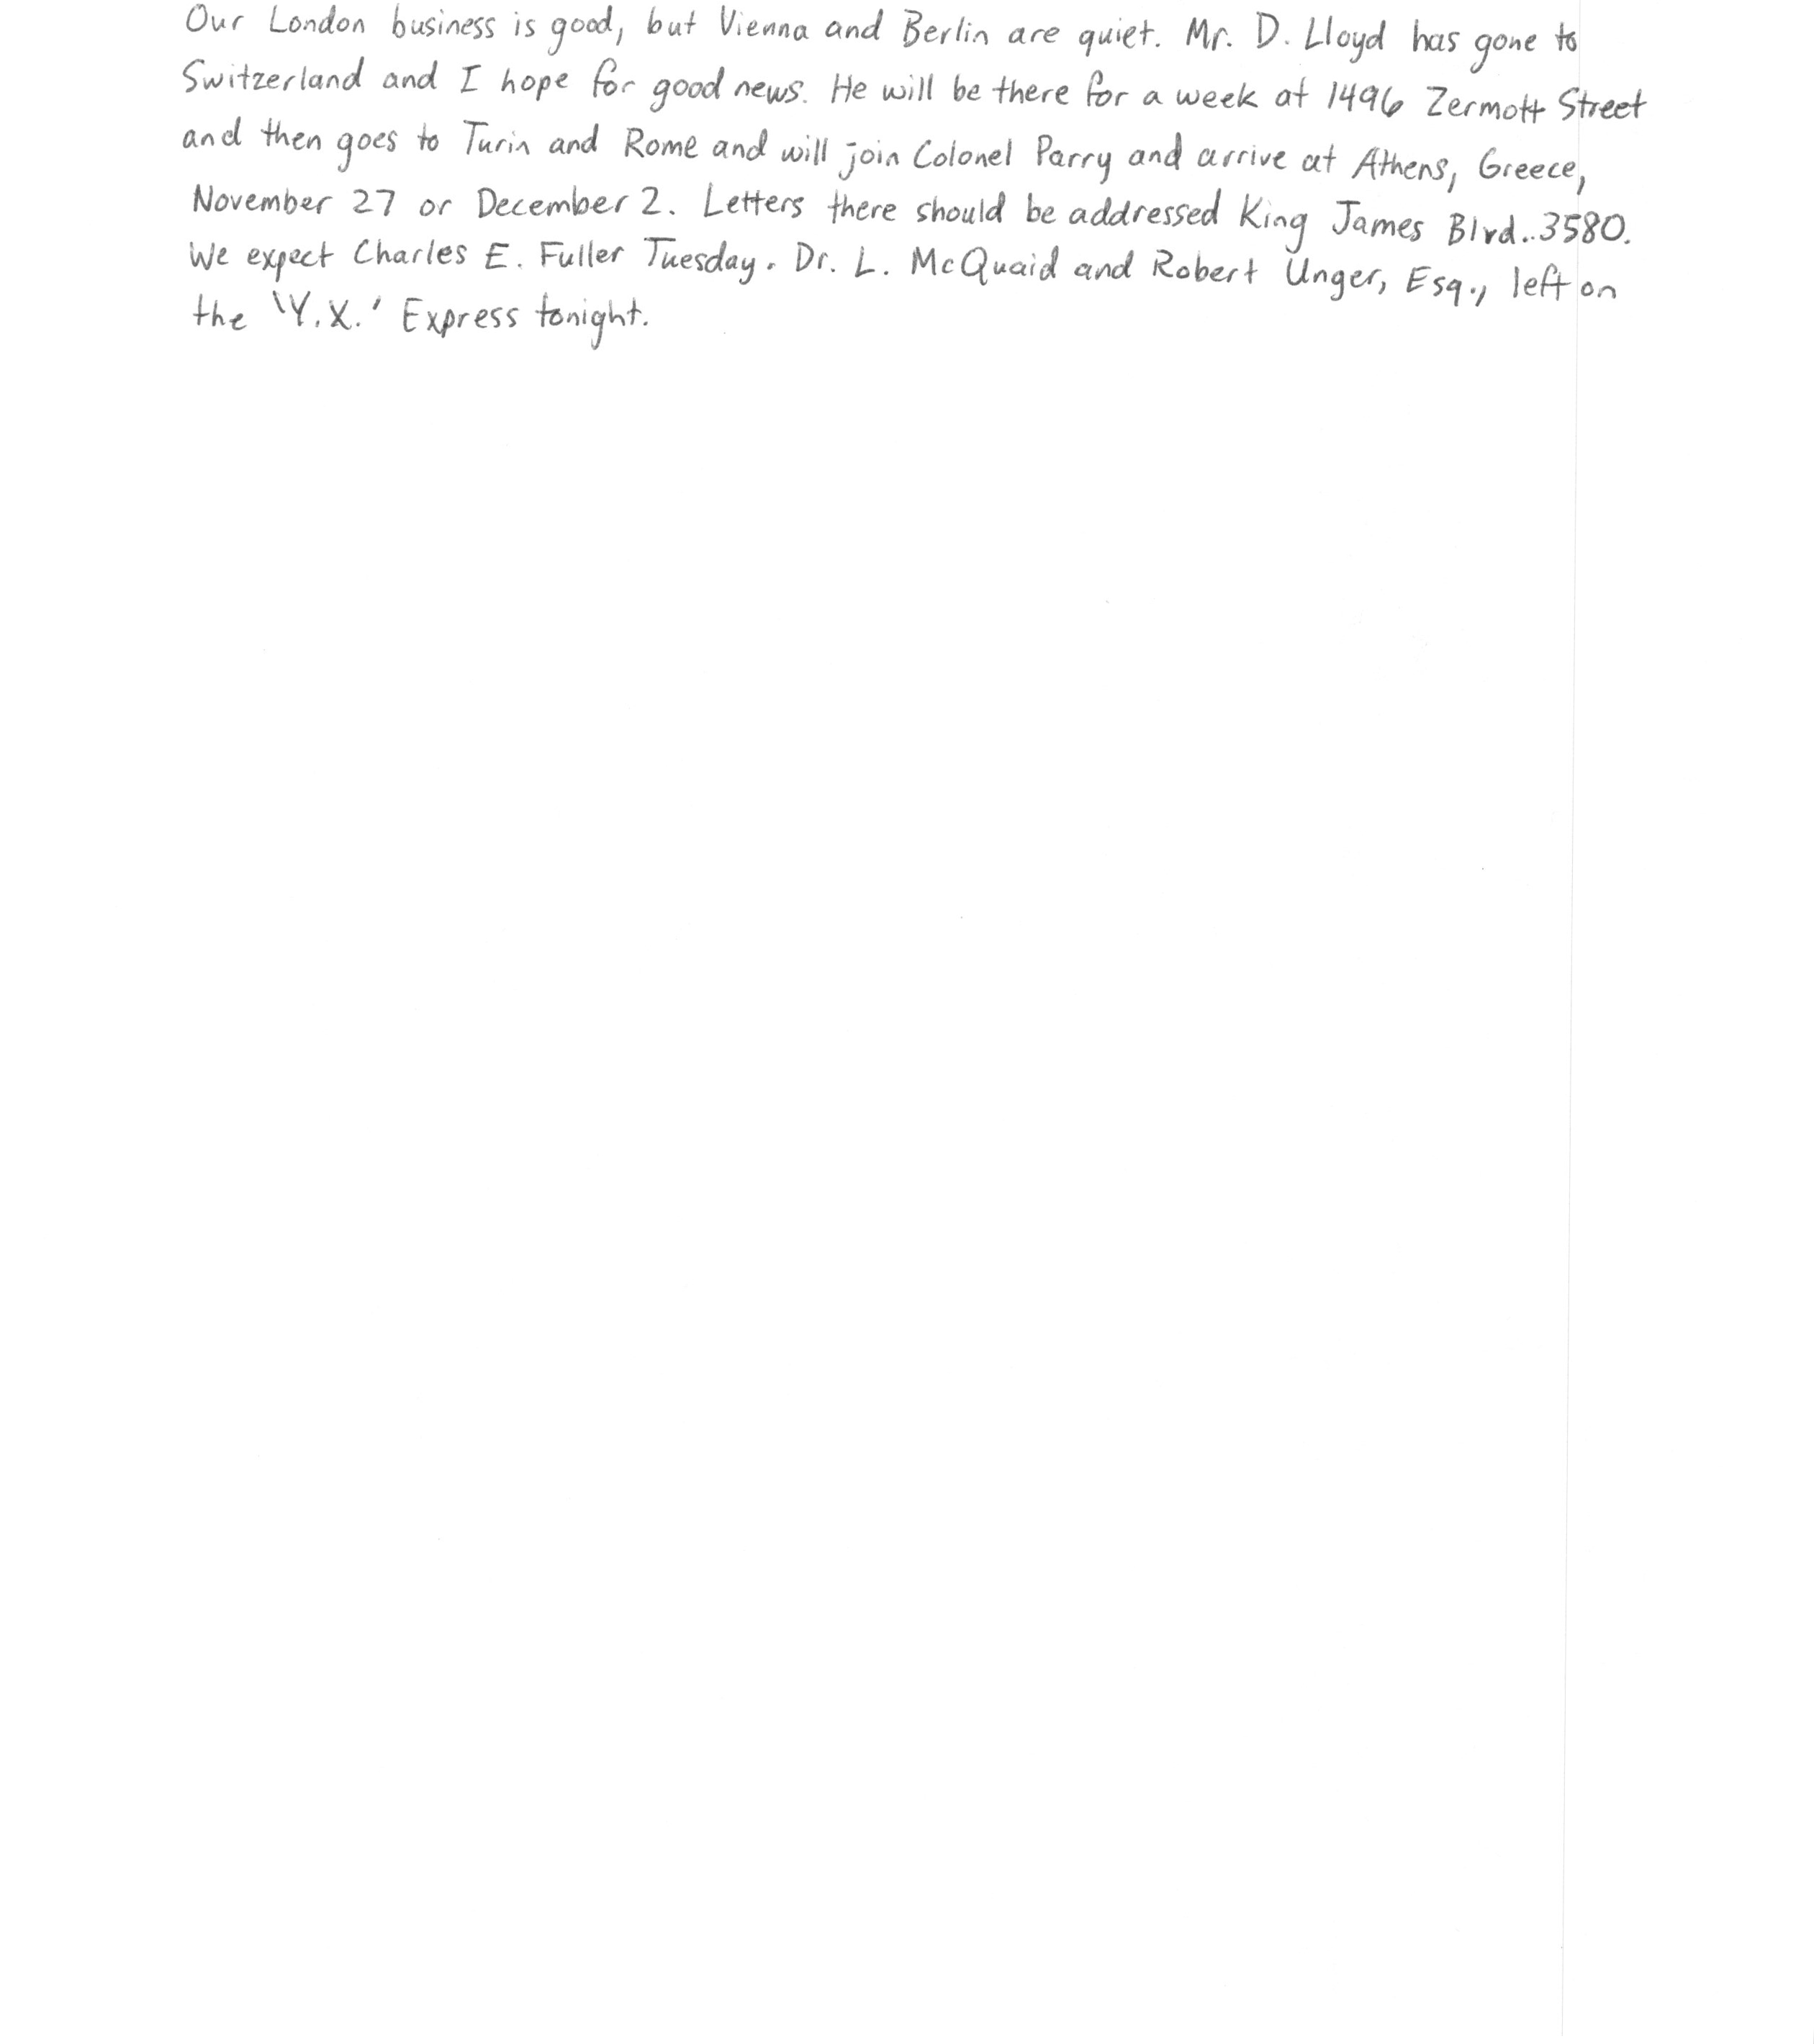 Our London business is good, but Vienna and Berlin are quiet. Mr. D. Lloyd has gone to
Switzerland and I hope for good news. He will be there for a week at 1496 Zermott Street
and then goes to Turin and Rome and will join Colonel Parry and arrive at Athens, Greece,
November 27 or December 2. Letters there should be addressed King James Blvd..3580.
We expect Charles E. Fuller Tuesday. Dr. L. McQuaid and Robert Unger, Esq., left on
the 'Y.X.' Express tonight.